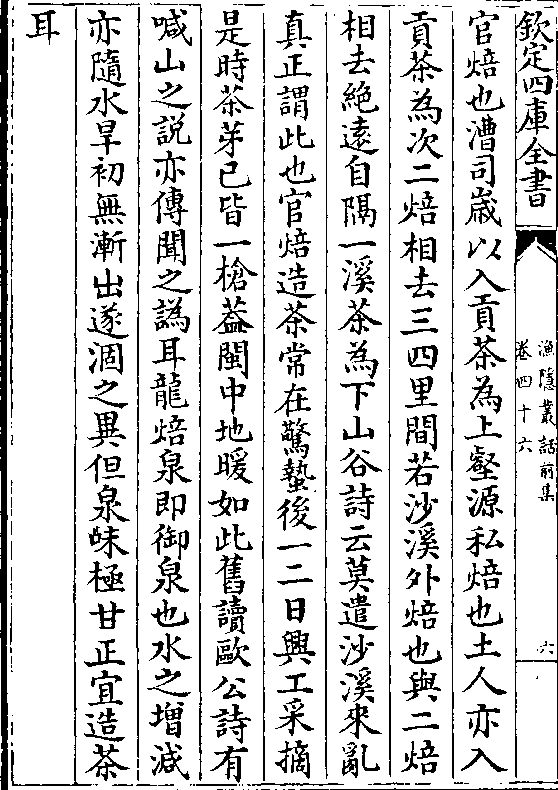 欽定四庫全書
漁隱叢話前集
卷四十六
六
官焙也漕司嵗以入貢茶為上壑源私焙也土人亦入
貢茶為次二焙相去三四里間若沙溪外焙也與二焙
相去絶遠自隔一溪茶為下山谷詩云莫遣沙溪來亂
真正謂此也官焙造茶常在驚蟄後一二日興工采摘
是時茶芽已皆一槍葢閩中地暖如此舊讀歐公詩有
喊山之説亦傳聞之譌耳龍焙泉即御泉也水之増減
亦隨水旱初無漸出遂涸之異但泉味極甘正宜造茶
耳